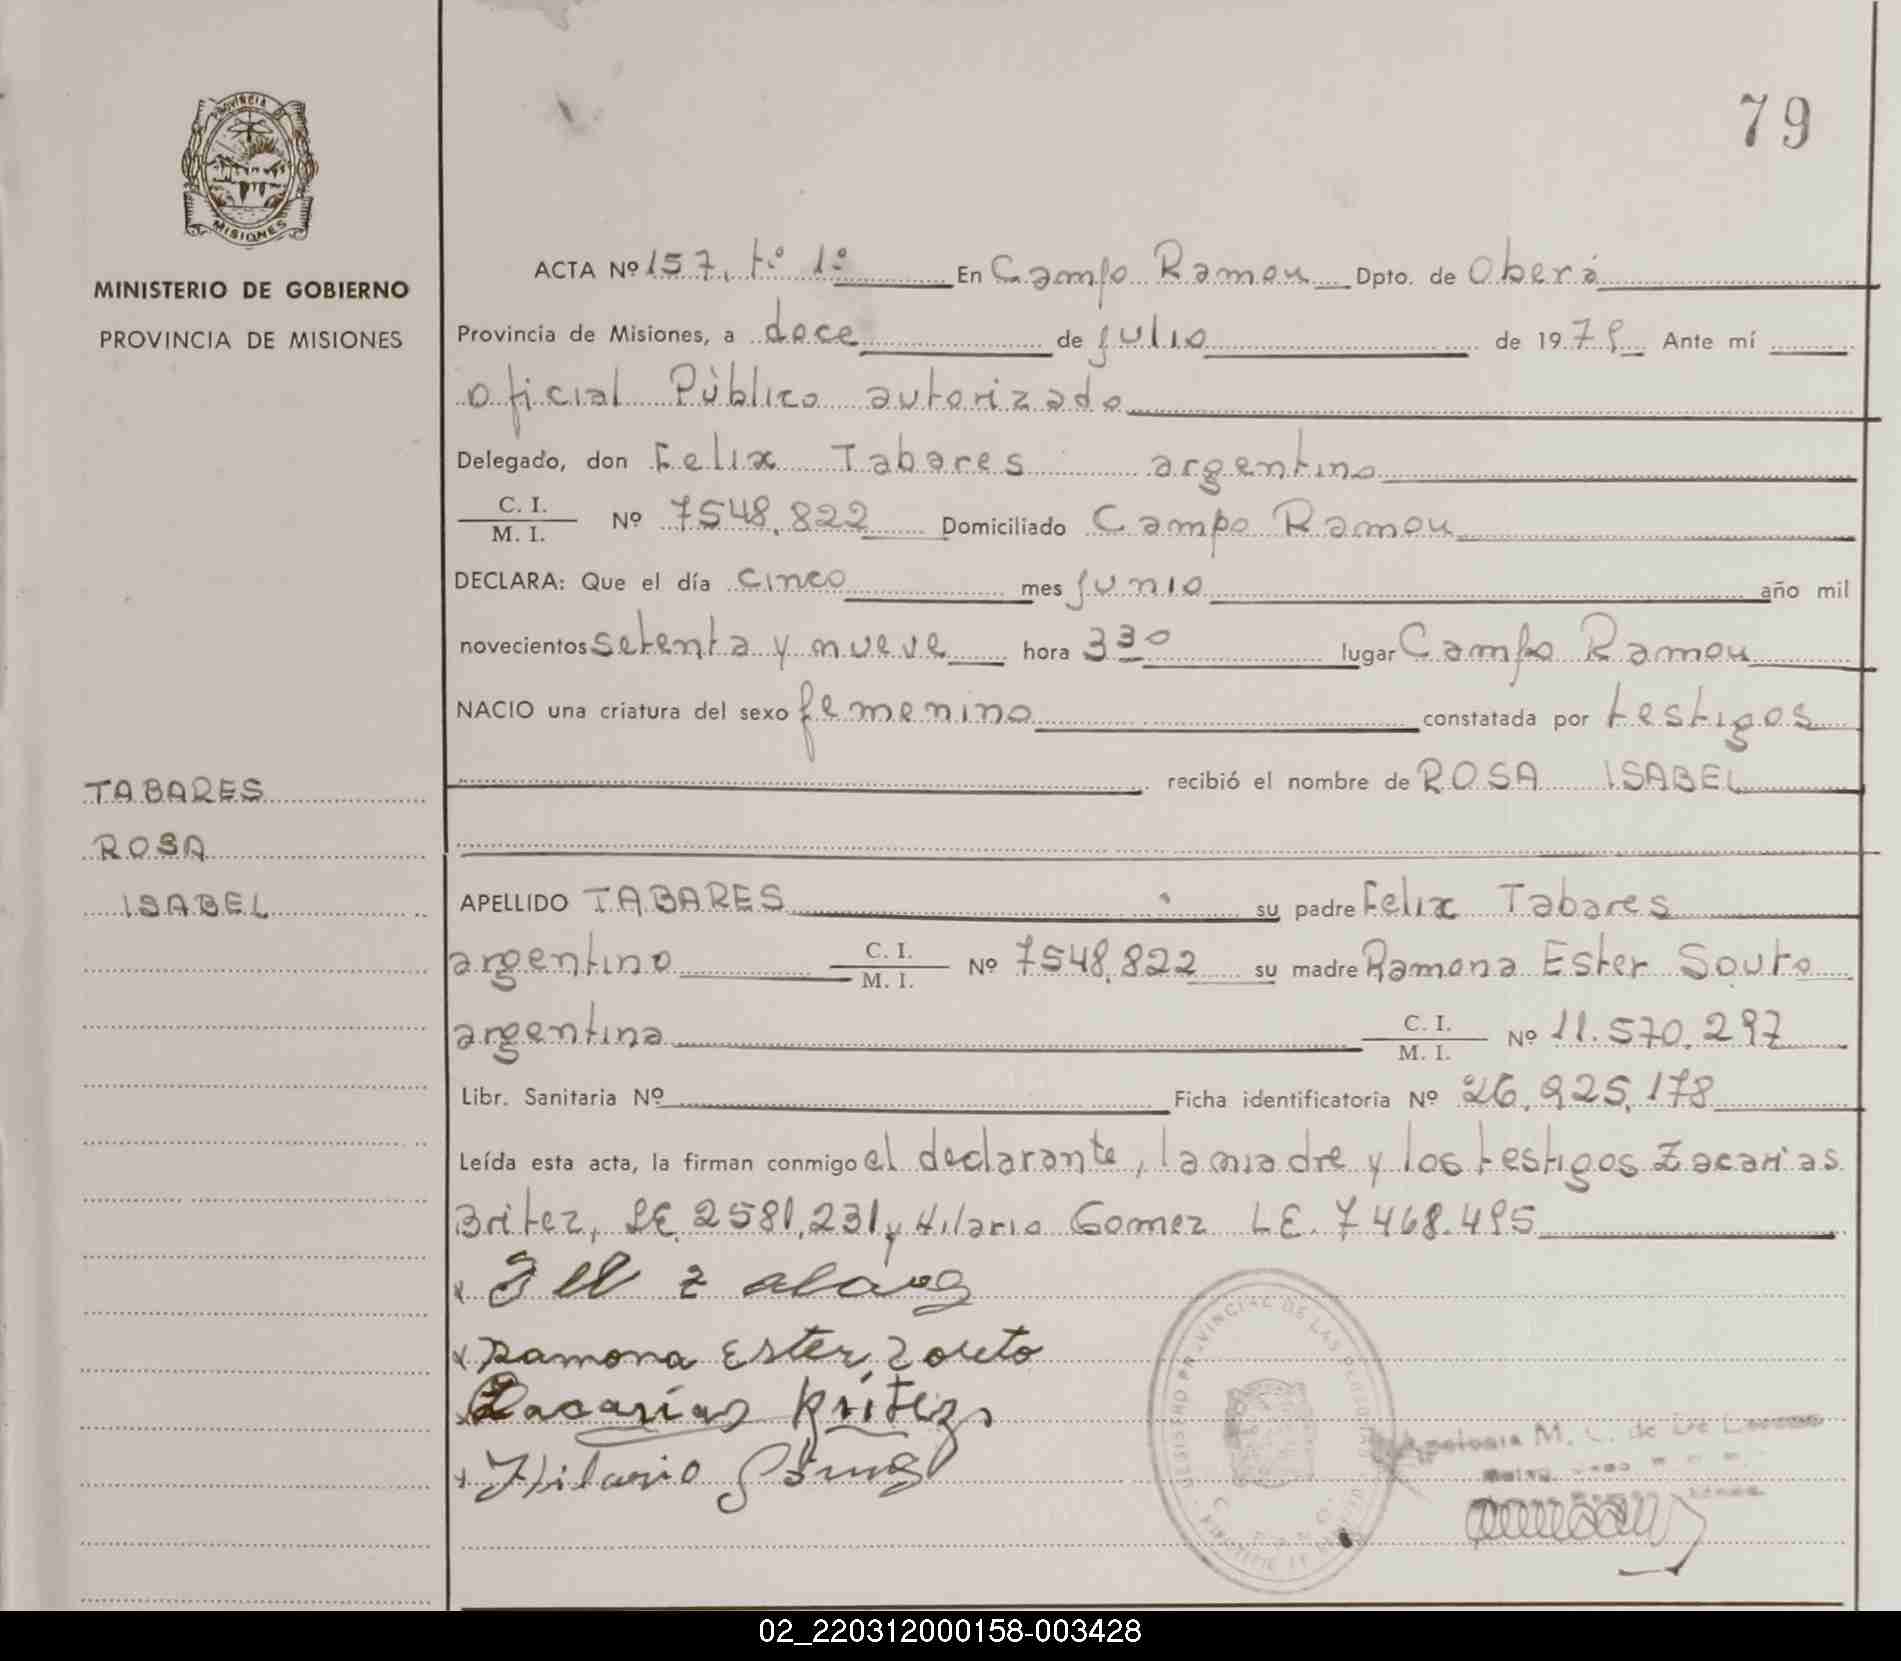 79
PROVINCIA DE
MISIONES
MINISTERIO DE GOBIERNO
PROVINCIA DE MISIONES
ACTA Nº 157, tº 1º En Campo Ramou Dpto. de Oberá
Provincia de Misiones, a doce de julio de 1979 Ante mí
oficial Público autorizado
Delegado, don Felix Tabares argentino
C. I. / M. I. Nº 7548.822 Domiciliado Campo Ramou
DECLARA: Que el día cinco mes junio año mil
novecientos setenta y nueve hora 3 30 lugar Campo Ramou
NACIO una criatura del sexo femenino constatada por testigos
recibió el nombre de ROSA ISABEL
TABARES
ROSA
ISABEL
APELLIDO TABARES su padre Felix Tabares
argentino C. I. / M. I. Nº 7548.822 su madre Ramona Ester Souto
argentina C. I. / M. I. Nº 11.570.297
Libr. Sanitaria Nº Ficha identificatoria Nº 26.925.178
Leída esta acta, la firman conmigo el declarante, la madre y los testigos Zacarias
Britez, LE 2581.231 y Hilario Gomez LE. 7468.495
Ramona Ester
Zacarías Britez
Hilario Gómez
REGISTRO PROVINCIAL DE LAS PERSONAS
M. C. de De
02_220312000158-003428